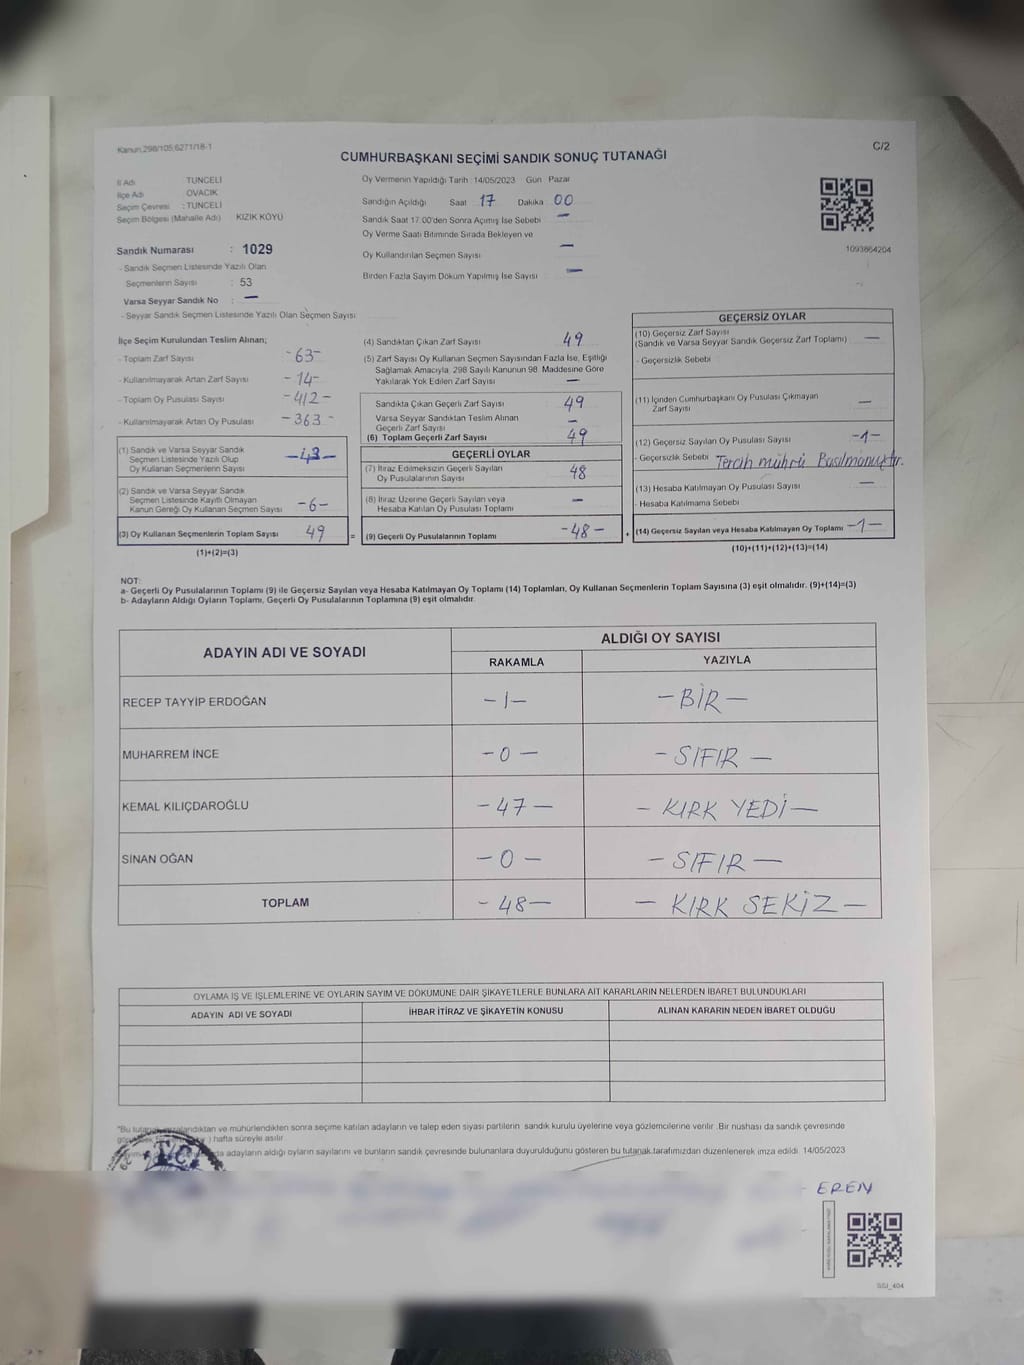 Kanun:298/105;6271/18-1
C/2
CUMHURBAŞKANI SEÇİMİ SANDIK SONUÇ TUTANAĞI
İl Adı TUNCELİ
İlçe Adı OVACIK
Seçim Çevresi : TUNCELİ
Seçim Bölgesi (Mahalle Adı) KIZIK KÖYÜ
Sandık Numarası : 1029
- Sandık Seçmen Listesinde Yazılı Olan
Seçmenlerin Sayısı : 53
Varsa Seyyar Sandık No : —
- Seyyar Sandık Seçmen Listesinde Yazılı Olan Seçmen Sayısı
Oy Vermenin Yapıldığı Tarih :14/05/2023 Gün : Pazar
Sandığın Açıldığı Saat 17 Dakika 00
Sandık Saat 17.00'den Sonra Açılmış İse Sebebi —
Oy Verme Saati Bitiminde Sırada Bekleyen ve
Oy Kullandırılan Seçmen Sayısı —
Birden Fazla Sayım Döküm Yapılmış İse Sayısı —
1093864204
İlçe Seçim Kurulundan Teslim Alınan;
- Toplam Zarf Sayısı -63-
- Kullanılmayarak Artan Zarf Sayısı -14-
- Toplam Oy Pusulası Sayısı -412-
- Kullanılmayarak Artan Oy Pusulası -363-
(1) Sandık ve Varsa Seyyar Sandık
Seçmen Listesinde Yazılı Olup
Oy Kullanan Seçmenlerin Sayısı -43-
(2) Sandık ve Varsa Seyyar Sandık
Seçmen Listesinde Kayıtlı Olmayan
Kanun Gereği Oy Kullanan Seçmen Sayısı -6-
(3) Oy Kullanan Seçmenlerin Toplam Sayısı 49 =
(1)+(2)=(3)
(4) Sandıktan Çıkan Zarf Sayısı 49
(5) Zarf Sayısı Oy Kullanan Seçmen Sayısından Fazla İse, Eşitliği
Sağlamak Amacıyla, 298 Sayılı Kanunun 98. Maddesine Göre
Yakılarak Yok Edilen Zarf Sayısı —
Sandıkta Çıkan Geçerli Zarf Sayısı 49
Varsa Seyyar Sandıktan Teslim Alınan
Geçerli Zarf Sayısı —
(6) Toplam Geçerli Zarf Sayısı 49
GEÇERLİ OYLAR
(7) İtiraz Edilmeksizin Geçerli Sayılan
Oy Pusulalarının Sayısı 48
(8) İtiraz Üzerine Geçerli Sayılan veya
Hesaba Katılan Oy Pusulası Toplamı —
(9) Geçerli Oy Pusulalarının Toplamı -48- +
GEÇERSİZ OYLAR
(10) Geçersiz Zarf Sayısı
(Sandık ve Varsa Seyyar Sandık Geçersiz Zarf Toplamı) —
- Geçersizlik Sebebi
(11) İçinden Cumhurbaşkanı Oy Pusulası Çıkmayan
Zarf Sayısı —
(12) Geçersiz Sayılan Oy Pusulası Sayısı -1-
- Geçersizlik Sebebi Tercih mührü Basılmamıştır.
(13) Hesaba Katılmayan Oy Pusulası Sayısı —
- Hesaba Katılmama Sebebi
(14) Geçersiz Sayılan veya Hesaba Katılmayan Oy Toplamı -1-
(10)+(11)+(12)+(13)=(14)
NOT:
a- Geçerli Oy Pusulalarının Toplamı (9) ile Geçersiz Sayılan veya Hesaba Katılmayan Oy Toplamı (14) Toplamları, Oy Kullanan Seçmenlerin Toplam Sayısına (3) eşit olmalıdır. (9)+(14)=(3)
b- Adayların Aldığı Oyların Toplamı, Geçerli Oy Pusulalarının Toplamına (9) eşit olmalıdır.
ADAYIN ADI VE SOYADI ALDIĞI OY SAYISI
RAKAMLA YAZIYLA
RECEP TAYYİP ERDOĞAN -1- -BİR-
MUHARREM İNCE -0- -SIFIR-
KEMAL KILIÇDAROĞLU -47- -KIRK YEDİ-
SİNAN OĞAN -0- -SIFIR-
TOPLAM -48- -KIRK SEKİZ-
OYLAMA İŞ VE İŞLEMLERİNE VE OYLARIN SAYIM VE DÖKÜMÜNE DAİR ŞİKAYETLERLE BUNLARA AİT KARARLARIN NELERDEN İBARET BULUNDUKLARI
ADAYIN ADI VE SOYADI İHBAR İTİRAZ VE ŞİKAYETİN KONUSU ALINAN KARARIN NEDEN İBARET OLDUĞU
"Bu tutanak imzalandıktan ve mühürlendikten sonra seçime katılan adayların ve talep eden siyasi partilerin sandık kurulu üyelerine veya gözlemcilerine verilir .Bir nüshası da sandık çevresinde
) hafta süreyle asılır.
adayların aldığı oyların sayılarını ve bunların sandık çevresinde bulunanlara duyurulduğunu gösteren bu tutanak tarafımızdan düzenlenerek imza edildi. 14/05/2023
T.C.
EREN
SSI_404